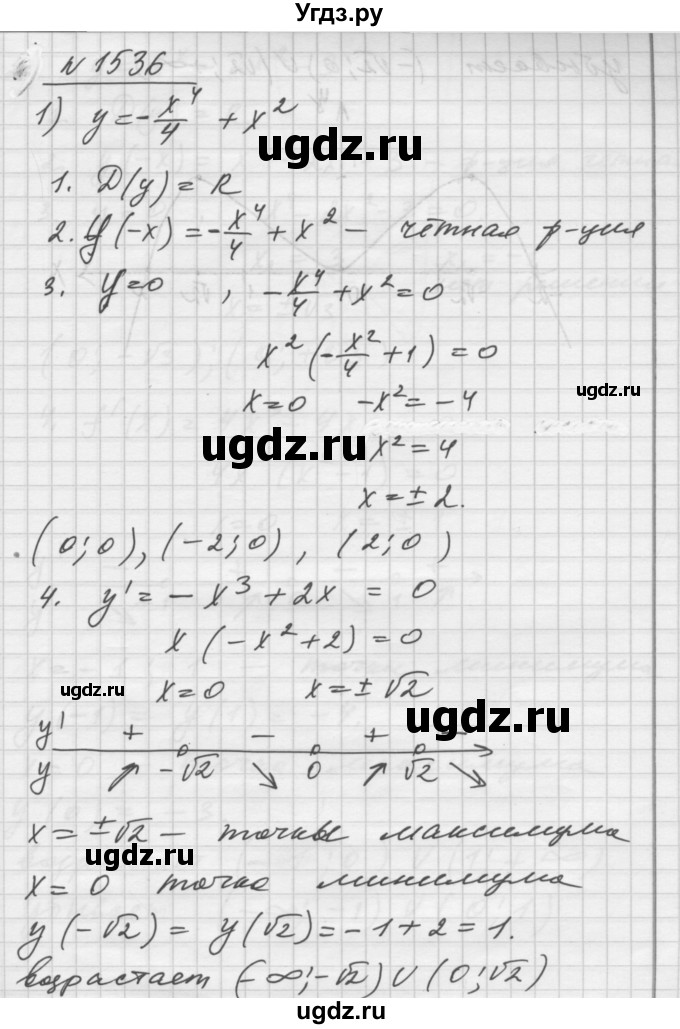 Угдз.ру
№ 1536
1) y = -x⁴/4 + x²
ugdz.ru
1. D(y) = R
2. y(-x) = -x⁴/4 + x² — чётная ф-ция
3. y=0 , -x⁴/4 + x² = 0
x²(-x²/4 + 1) = 0
ugdz.ru
x=0 -x² = -4
ugdz.ru
x² = 4
x = ± 2.
(0;0), (-2;0), (2;0)
4. y' = - x³ + 2x = 0
x (-x² + 2) = 0
ugdz.ru
x=0 x=±√2
ugdz.ru
y' + - + -
y ↗ -√2 ↘ 0 ↗ √2 ↘
x = ±√2 — точки максимума
ugdz.ru
x = 0 точка минимума
y(-√2) = y(√2) = -1+2 = 1.
ugdz.ru
возрастает (-∞;-√2) ∪ (0;√2)
ugdz.ru